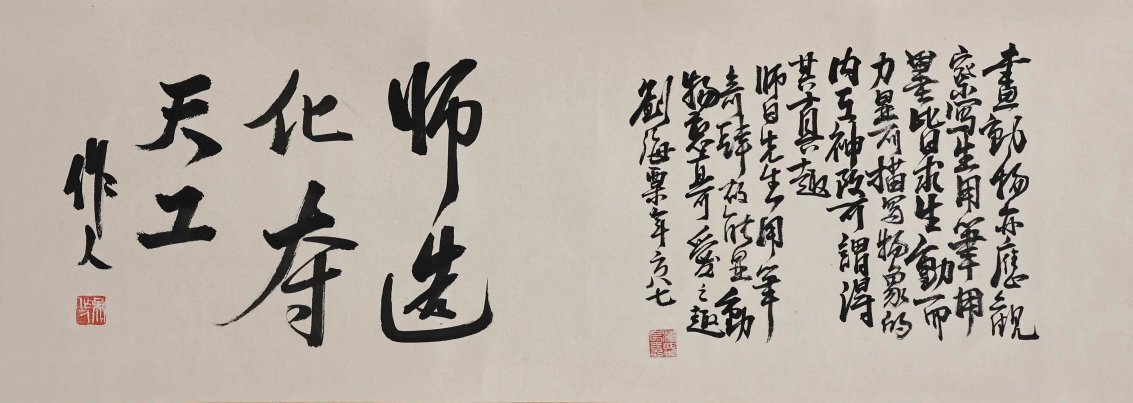 畫動物亦應觀
察寫生用筆用
墨皆求生動而
力 描写物象的
内在神 可謂得
其真趣
师日先生用筆
奇肆故能显動
物 愛之趣
劉海粟年方八七
师造
化夺
天工
作人